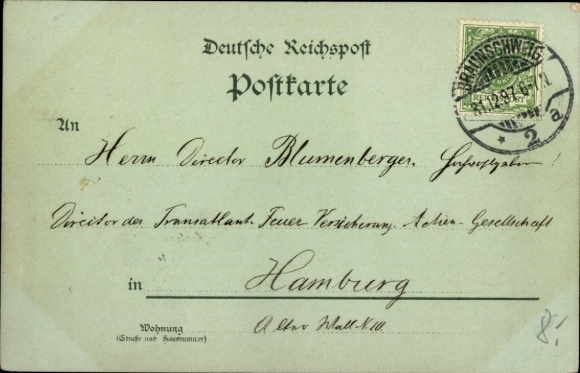 Deutsche Reichspost
Postkarte
BRAUNSCHWEIG
31.12.97.6-7N.
* 2 a
REICHSPOST
An
Herrn Director Blumenberger. Hochwohlgeboren!
Director der Transatlant. Feuer Versicherung. Actien-Gesellschaft
in Hamburg
Alter Wall N. 10
Wohnung
(Straße und Hausnummer)
8.-